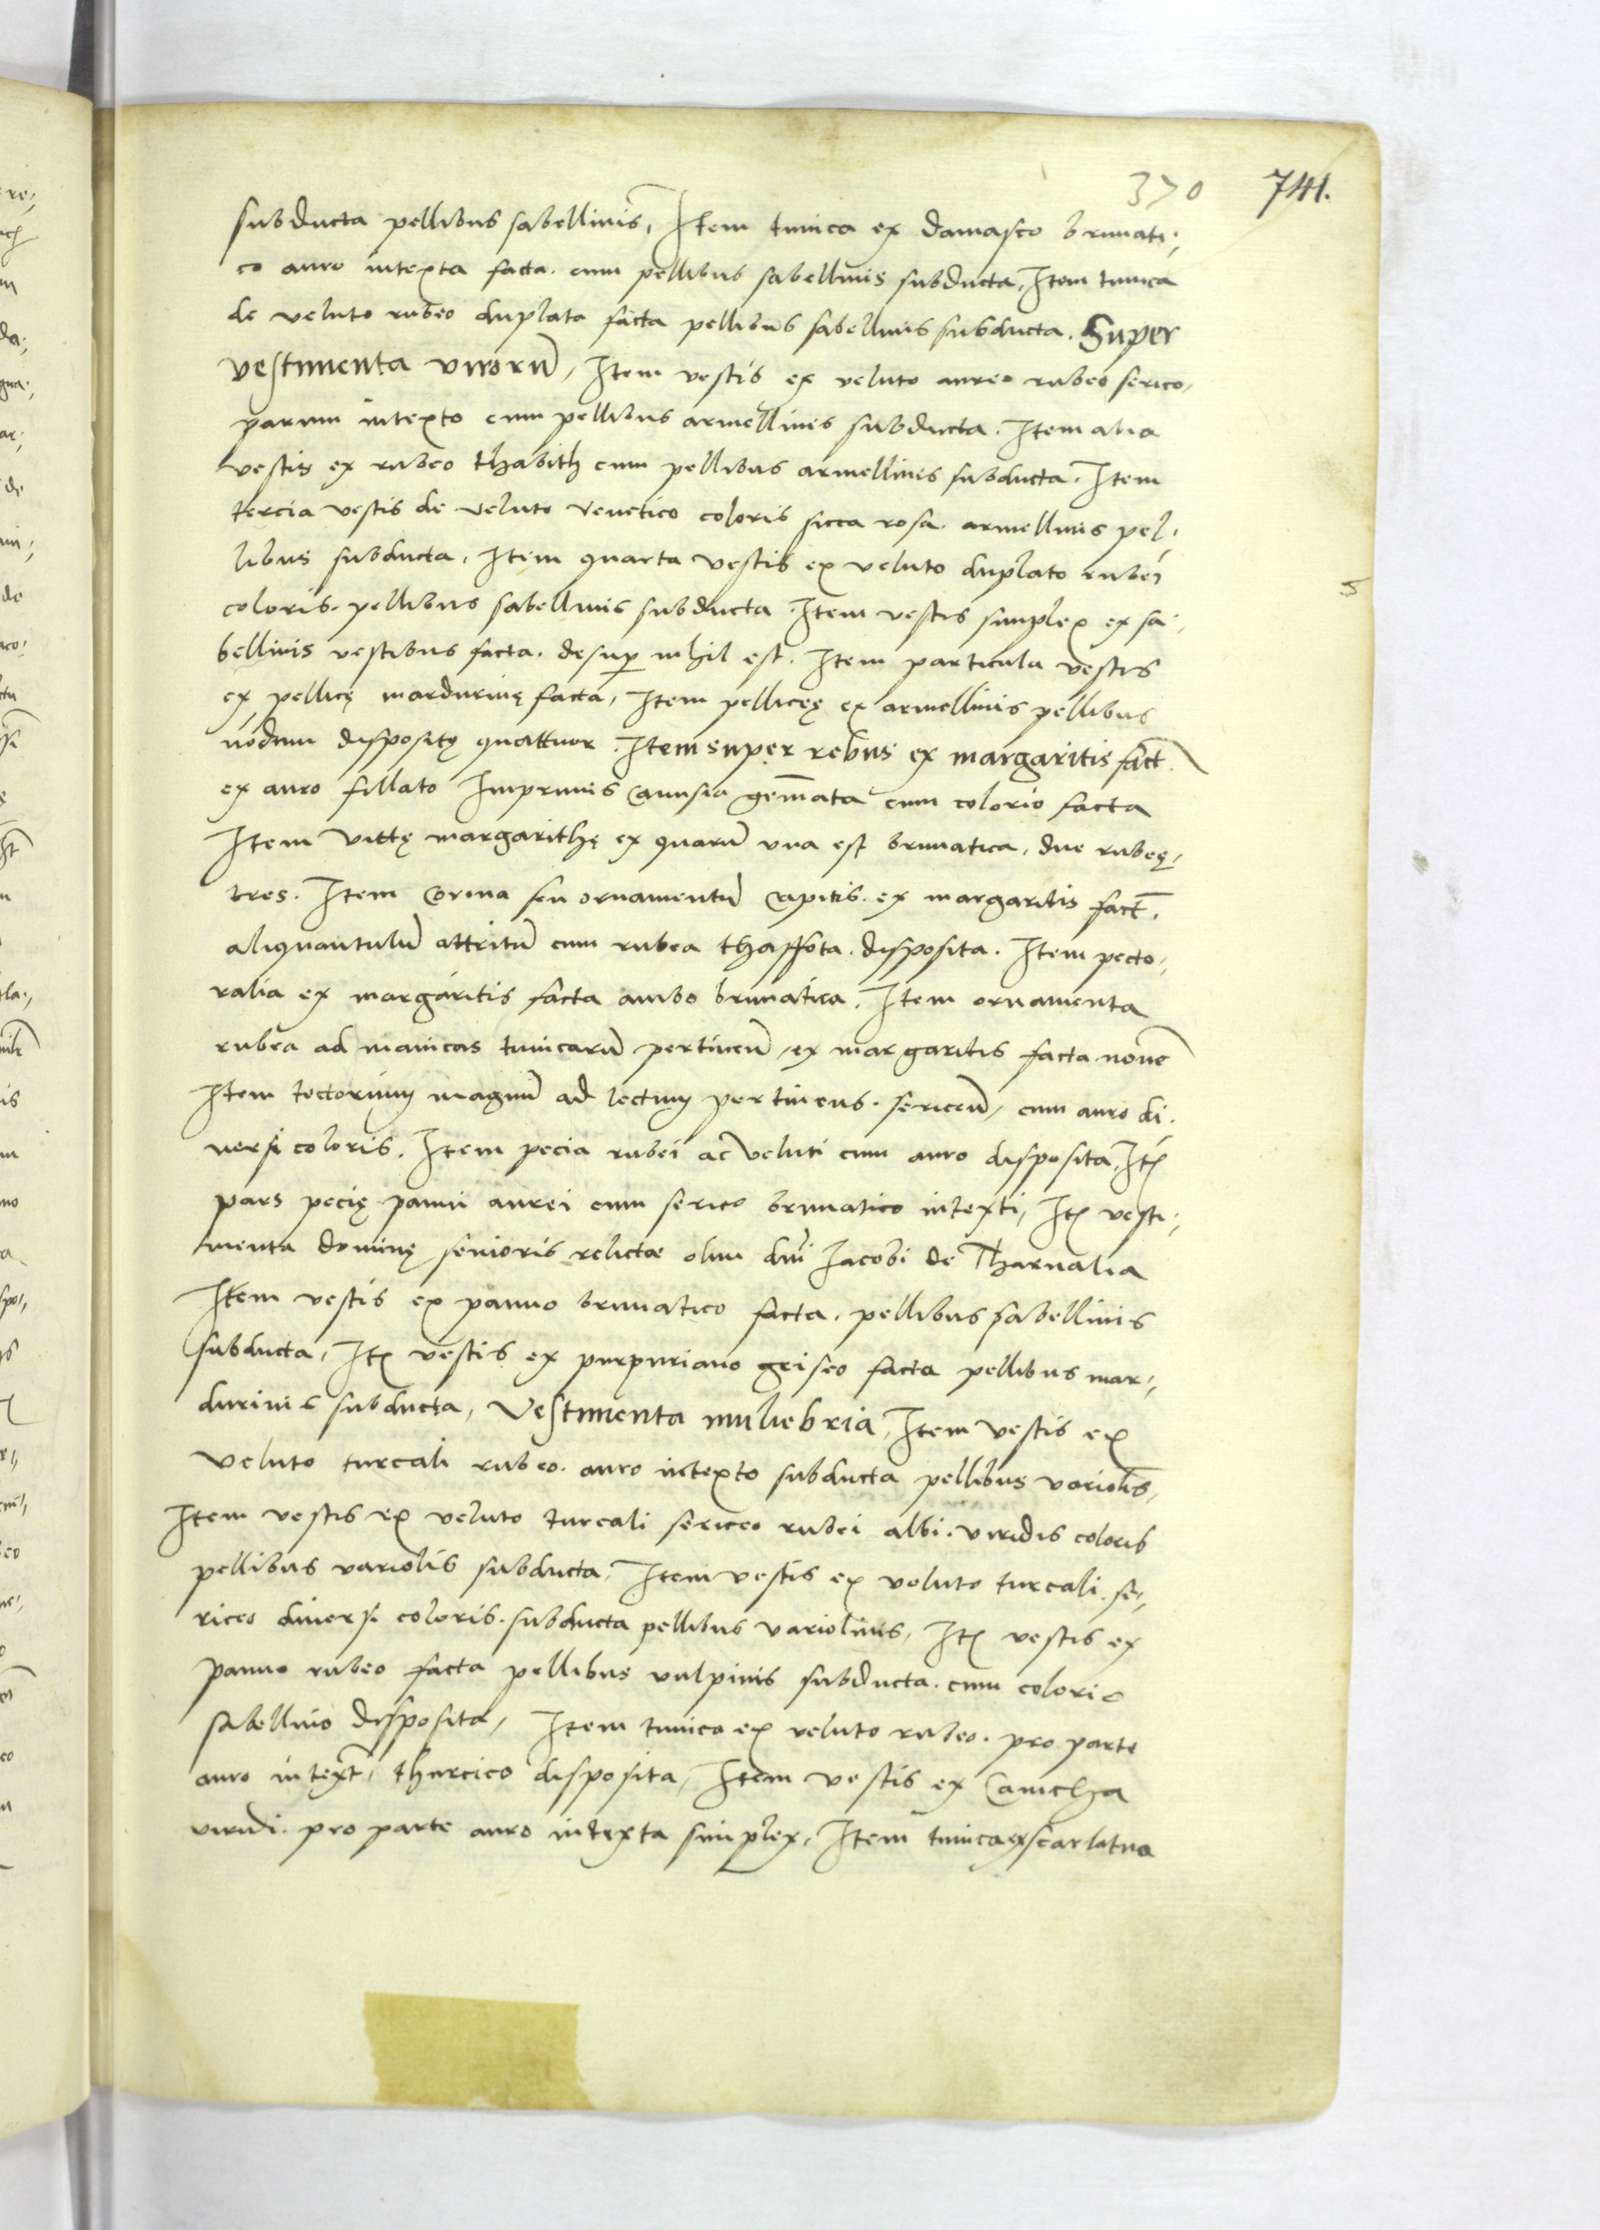 370 741.
subducta pellibus sabellinis, Item tunica ex damasco brunati:
co auro intexta facta. cum pellibus sabellinis subducta, Item tunica
de veluto rubeo duplato facta pellibus sabellinis subducta. Super
vestimenta virorū, Item vestis ex veluto aureo rubeo serico,
parum intexto cum pellibus armellinis subducta. Item alia
vestis ex rubeo thabith cum pellibus armellinis subducta. Item
tercia vestis de veluto venetico coloris sicca rosa. armellinis pel:
libus subducta, Item quarta vestis ex veluto duplato rubei
coloris. pellibus sabellinis subducta. Item vestis simplex ex sa:
bellinis vestibus facta. desup nihil est. Item particula vestis
ex pellicę mardurinę facta, Item pelliceę ex armellinis pellibus
nodum dispositę quattuor. Item super rebus ex margaritis fact.
ex auro fillato Imprimis Camisia gēmata cum colorio facta
Item vittę margarithę ex quarū una est brunatica, due rubeę,
tres. Item Corma seu ornamentū capitis. ex margaritis fact.
aliquantulū attritū cum rubea thaffota. disposita. Item pecto:
ralia ex margaritis facta ambo brunatica, Item ornamenta
rubea ad manicas tunicarū pertinen, ex margaritis facta novē
Item tectorium magnū ad lectum pertinens. sericeū, cum auro di:
versi coloris. Item pecia rubei ac veluti cum auro disposita, Itē
pars pecię panni aurei cum serico brunatico intexti, Itē vesti:
menta dominę senioris relictae olim dni Jacobi de Tharnalia
Item vestis ex panno brunatico facta. pellibus sabellinis
subducta, Itē vestis ex purpuriano griseo facta pellibus mar:
durinis subducta, Vestimenta muliebria, Item vestis ex
veluto turcali rubeo. auro intexto subducta pellibus variolis,
Item vestis ex veluto turcali sericeo rubei albi. viridis coloris
pellibus variolis subducta, Item vestis ex veluto turcali. se:
riceo diversi coloris. subducta pellibus variolinis, Itē vestis ex
panno rubeo facta pellibus vulpinis subducta. cum colorio
sabellino disposita, Item tunica ex veluto rubeo. pro parte
auro intext, thurcico disposita, Item vestis ex Camcha
viridi. pro parte auro intexta simplex, Item tunica ex scarlatna